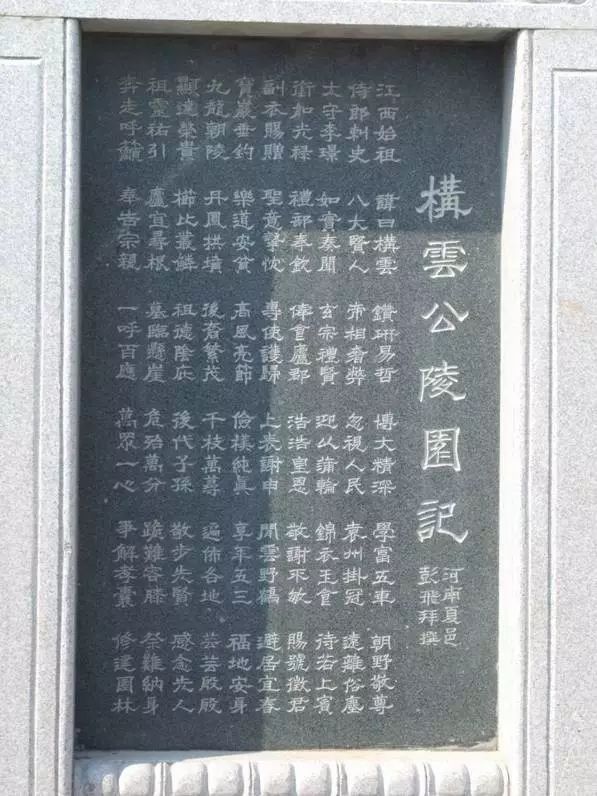 構雲公陵園記
河南夏邑
彭飛拜撰
江西始祖 諱曰構雲 鑽研易哲 博大精深 學富五車 朝野敬尊
侍郎刺史 八大賢人 帝相奢弊 忽視人民 袁州掛冠 遠離俗塵
太守李璟 如實奏聞 玄宗禮賢 迎以蒲輪 錦衣玉食 待若上賓
銜加光祿 禮部奉欽 俸食廬郡 浩浩皇恩 敬謝不敏 賜號徵君
副衣賜贈 聖意摯忱 專使護歸 上表謝申 閒雲野鶴 避居宜春
寶巖垂釣 樂道安貧 高風亮節 儉樸純真 享年五三 福地安身
九龍朝陵 丹鳳拱墳 後裔繁茂 千枝萬蓴 遍佈各地 芸芸殷殷
顯達榮貴 櫛比叢鱗 祖德陰庇 後代子孫 散步先賢 感念先人
祖靈祐引 廬宜尋根 墓臨懸崖 危殆萬分 跪難容膝 祭難納身
奔走呼籲 奉告宗親 一呼百應 萬眾一心 爭解孝囊 修建園林